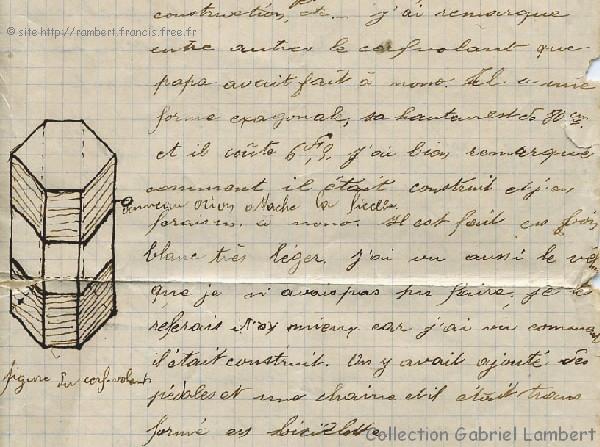 © site http://rambert.francis.free.fr
construction, etc. j'ai remarqué
entre autres le cerfvolant que
papa avait fait à mono. Il a une
forme exagonale, sa hauteur est de 80 cm.
et il coûte 6f,9. j'ai bien remarqué
comment il était construit et j'en
anneau où on attache la ficelle
ferais un à mono. Il est fait en bois
blanc très léger. j'ai vu aussi le vélo
que je n'avais pas pu faire. je le
referait mieux car j'ai vu comment
il était construit. On y avait ajouté des
figure du cerf-volant
pédales et une chaine et il était trans
formé en bicicletta
Collection Gabriel Lambert